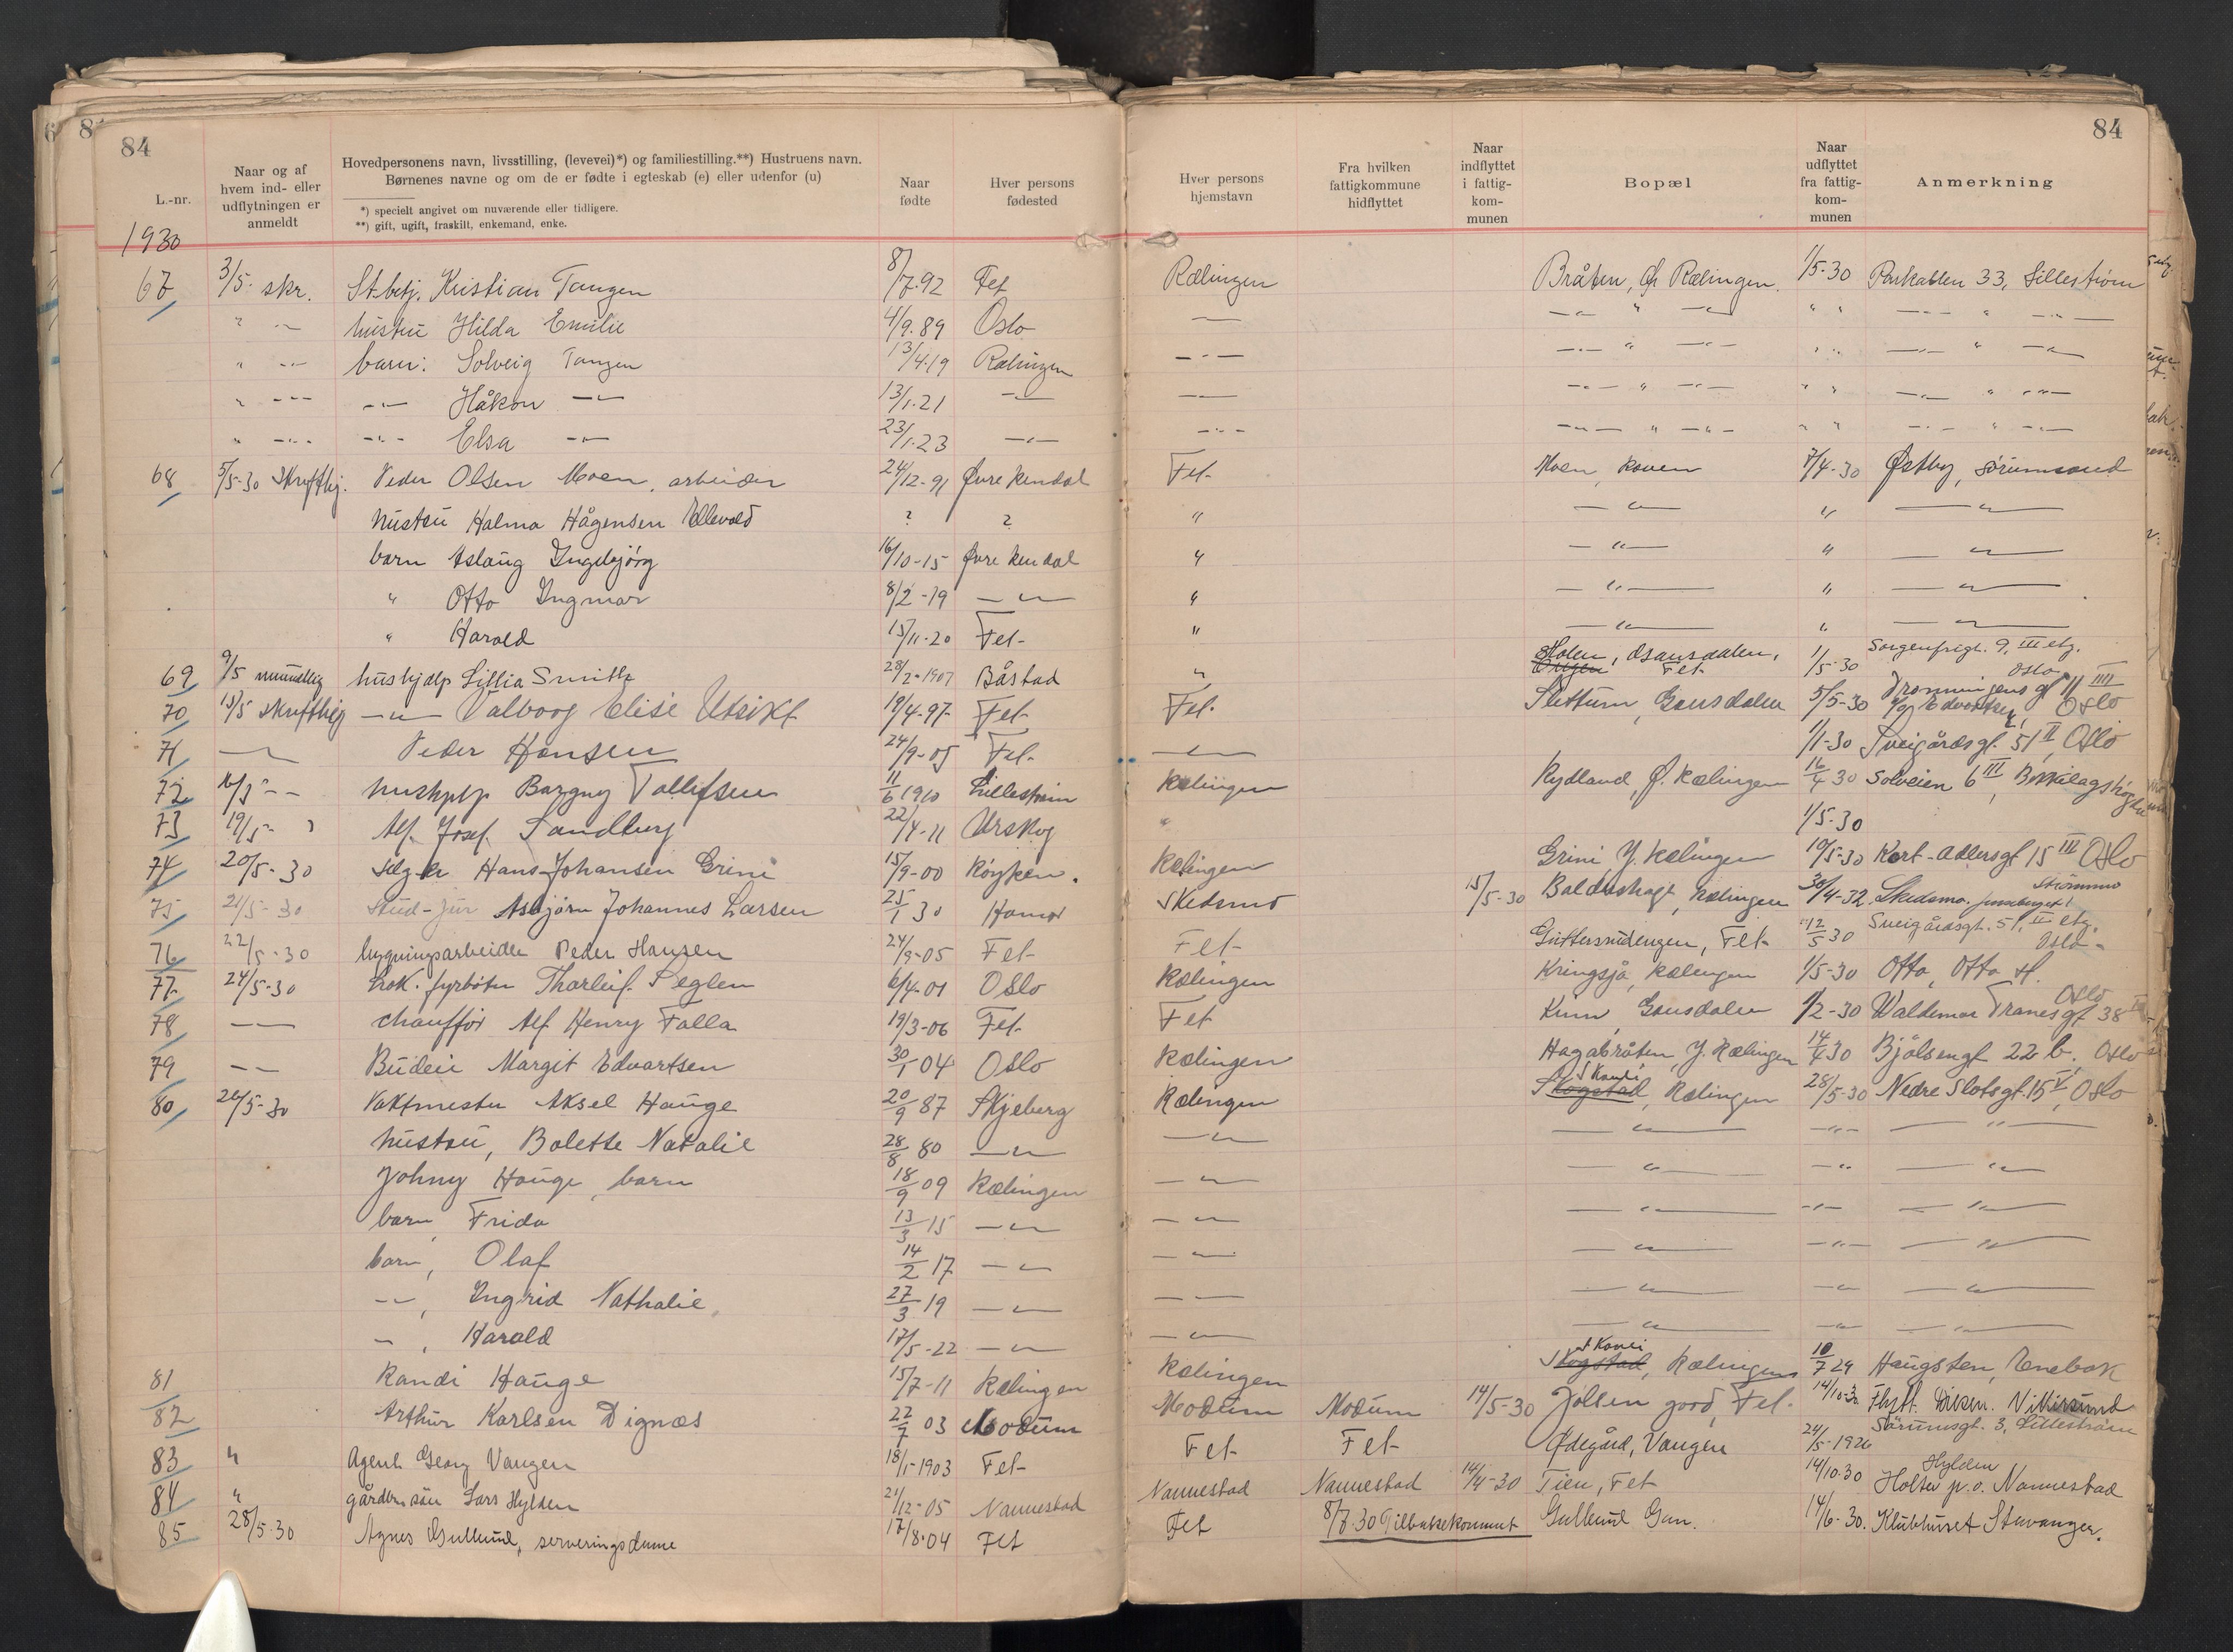 84
84
L.-nr.
Naar og af hvem ind- eller udflytningen er anmeldt
Hovedpersonens navn, livsstilling, (levevei)*) og familiestilling.**) Hustruens navn.
Børnenes navne og om de er fødte i egteskab (e) eller udenfor (u)
*) specielt angivet om nuværende eller tidligere.
**) gift, ugift, fraskilt, enkemand, enke.
Naar fødte
Hver persons fødested
Hver persons hjemstavn
Fra hvilken fattigkommune hidflyttet
Naar indflyttet i fattig-kom-munen
Bopæl
Naar udflyttet fra fattig-kom-munen
Anmerkning
1930
67 3/5. skr. St.betj. Kristian Tangen 8/7.92 Fet Rælingen Bråten, Ø. Rælingen. 1/5-30 Parkalleen 33, Lillestrøm
" — hustru Hilda Emilie 4/9.89 Oslo — — " — " " — " —
" — barn: Solveig Tangen 13/4.19 Rælingen — — " — " " — " —
" — — Håkon — 13/1.21 — — — " — " " — " —
" — — Elsa — 23/1.23 — — — " — " " — " —
68 5/5-30 Skriftlig. Peder Olsen Moen, arbeider 24/12-91 Øvre Rendal Fet- Moen, Roven 7/4-30 Østby, Sørumsand
hustru Halma Hågensen Ellevold ? ? " — " —
barn Aslaug Ingebjørg 16/10-15 Øvre Rendal " — " —
" Otto Ingmar 8/2-19 — " — " —
" Harald 15/11-20 Fet- " — " —
69 9/5 mundtlig hushjælp Lillia Smith 28/2-1907 Båstad " Holen, Gansdalen, Fet 1/5-30 Sorgenfrigt. 9, III etg. Oslo
70 13/5 skriftlig — Valborg Elise Utsikt 19/4-97- Fet- Fet- Slettum, Gansdalen 5/5-30 Dronningens gt 11 IIII Edvartsen, Oslo
71 — Peder Hansen 24/9-05 Fet- — 1/1-30 Sveigårdsgt. 51 II, Oslo
72 Borgny Tollefsen 11/6 1910 Lillestrøm Rælingen Rydland, Ø. Rælingen 16/4 30 Solveien 6 III,
73 19/5- " Alf. Josef. Sandberg 22/4-11 Urskog " 1/5-30
74 20/5-30 Hans Johansen Grini 15/9-00 Røyken. Rælingen Grini Y. Rælingen 19/5-30 Kort-Adlersgt 15 III Oslo
75 21/5-30 Stud-jur Asbjørn Johannes Larsen 25/1 30 Hamar Skedsmo 15/5-30 Rælingen 30/4-32. Skedsmo. Strømmen
76 22/5-30 bygningsarbeider Peder Hansen 24/9-05 Fet- Fet- Guttersrudengen, Fet- 12/5 30 Sveigårdsgt. 51, II etg. Oslo-
77 24/5-30 Lok. fyrbøter Thorleif. Seglem 6/4-01 Oslo Rælingen Kringsjå, Rælingen 1/5-30 Otta, Otta st.
78 — chauffør Alf Henry Falla 19/3-06 Fet- Fet Gansdalen 1/2-30 Waldemar Tranesgt 38 Oslo
79 — Budeie Margit Edvartsen 30/1 04 Oslo Rælingen Hagabråten, Y. Rælingen 14/4 30 Bjølsengt 22 b, Oslo
80 26/5-30 Vaktmester Aksel Hauge 20/9 87 Skjeberg Rælingen Skogstad, Rælingen 28/5-30 Nedre Slotsgt. 15 V, Oslo
hustru, Bolette Natalie 28/8 80 — — — — —
Johny Hauge, barn 18/9 09 Rælingen — — — —
barn, Frida 13/3 15 — — — — —
barn, Olaf 14/2 17 — — — — —
—, Ingrid Nathalie, 27/3 19 — — — — —
—, Harald 17/5-22 — — — — —
81 Randi Hauge 15/7-11 Rælingen Rælingen Skogstad, Rælingen 10/7 29 Haugsten, Enebak
82 Arthur Karlsen Dignæs 22/7 03 Modum Modum Modum 14/5-30 Jølsen gård, Fet- 14/10-30 Flytt. Vikersund
83 " Agent Georg Vangen 18/1-1903 Fet- Fet- Fet- Ødegård, Vangen 24/5-1926 Sørumsgt. 3, Lillestrøm
84 " gårdbr.søn Lars Hylden 21/12-05 Nannestad Nannestad Nannestad 14/4-30 Tien, Fet 14/10.30 Hylden Holter p.o. Nannestad
85 28/5-30 Agnes Gullund, serveringsdame 17/8.04 Fet Fet 8/7.30 Tilbakekommet Gullund Gan. 14/6-30. Klubhuset Stavanger.